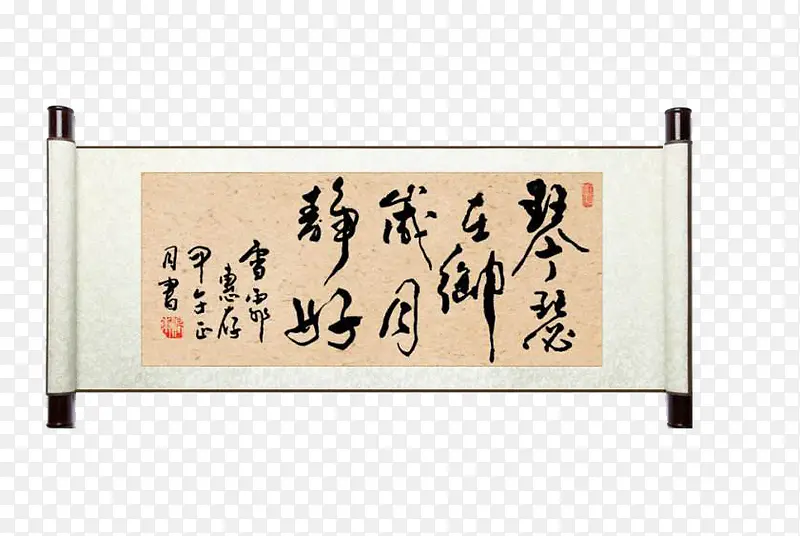 琴瑟
在御
岁月
静好
雪霏
惠存
甲午正
月书